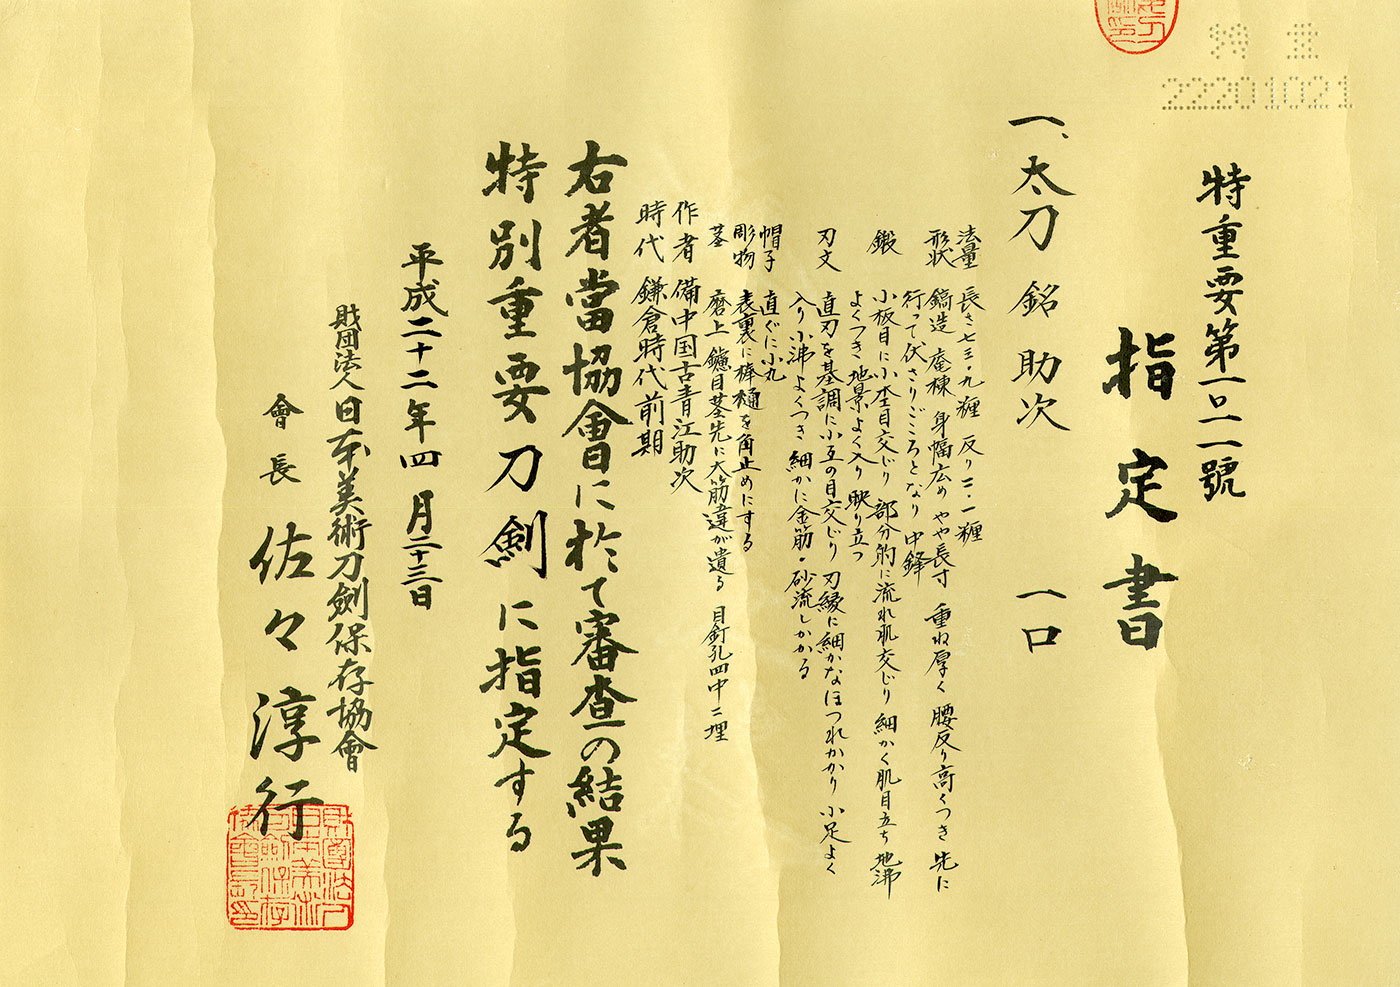 特重
22201021
特重要第一口一一號
指定書
一、太刀 銘 助次 一口
法量 長さ七三・九糎 反り二・一糎
形状 鎬造 庵棟 身幅広め やや長寸 重ね厚く 腰反り高くつき 先に
行って伏さりごころとなり 中鋒
鍛 小板目に小杢目交じり 部分的に流れ肌交じり 細かく肌目立ち 地沸
よくつき 地景よく入り 映り立つ
刃文 直刃を基調に小互の目交じり 刃縁に細かなほつれかかり 小足よく
入り 小沸よくつき 細かに金筋・砂流しかかる
帽子 直ぐに小丸
彫物 表裏に棒樋を角止めにする
茎 磨上 鑢目茎先に大筋違が遺る 目釘孔四中二埋
作者 備中国古青江助次
時代 鎌倉時代前期
右者當協會に於て審査の結果
特別重要刀剣に指定する
平成二十二年四月二十三日
財団法人日本美術刀劍保存協會
會長 佐々淳行